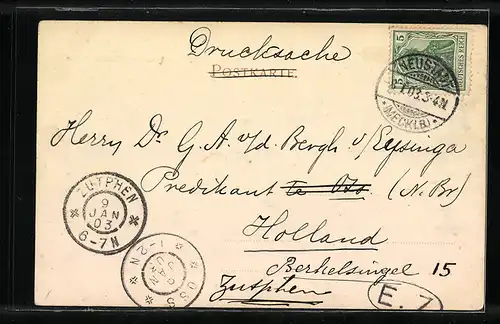 Drucksache
POSTKARTE
5
DEUTSCHES REICH
NEUSTADT
1.03.3-4N.
*(MECKLB)*
Herry Dr G. A. v/d. Bergh v/Eysinga
Predikant te Oss (N. Br)
Holland
Berkelsingel 15
Zutphen
E. 7
ZUTPHEN
9
JAN
03
6-7N
OSS
JAN
1-2N